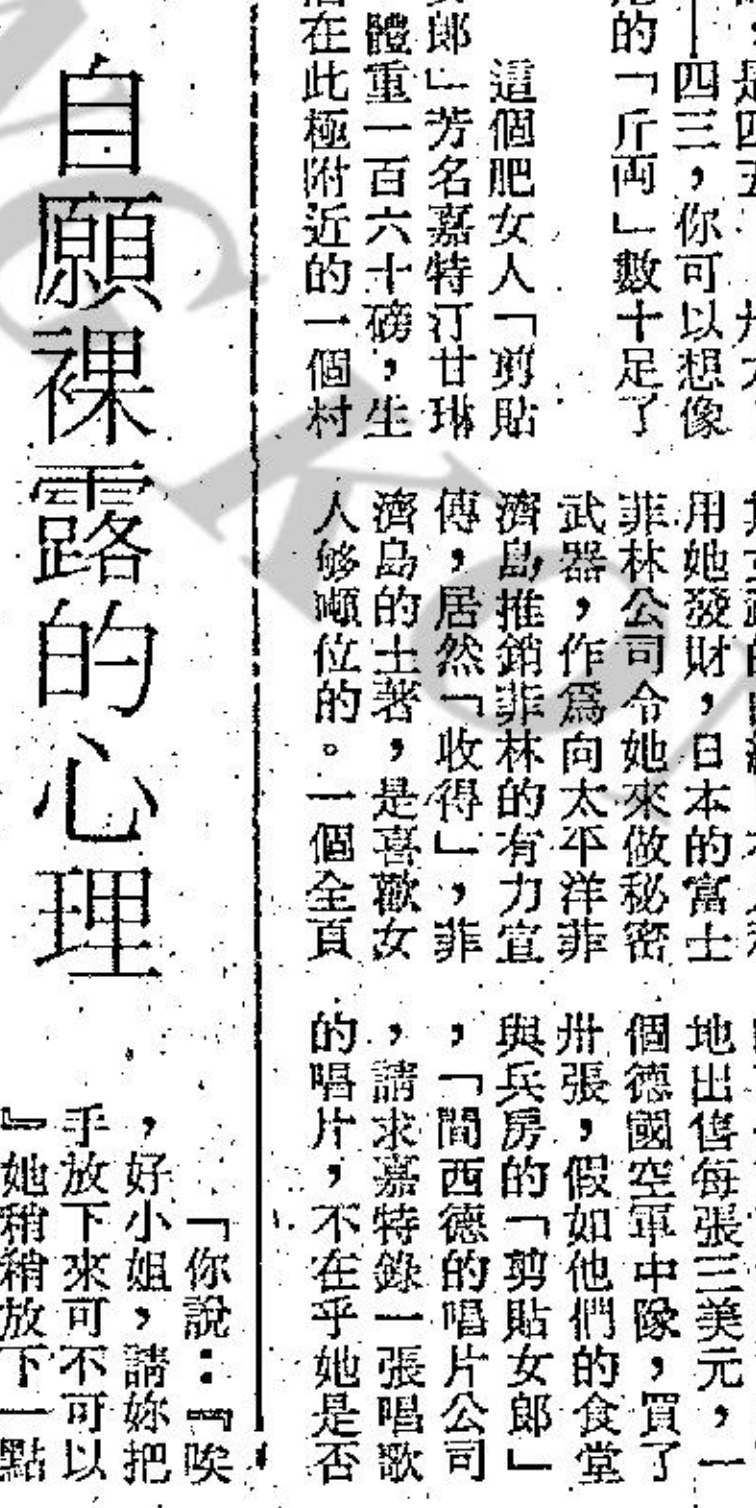 ——四三,你可以想像
的「斤両」數十足了
這個肥女人「剪貼
郎」芳名嘉特汀甘琳
體重一百六十磅,生
在此極附近的一個村
用她發財,日本的富士
菲林公司令她來做秘密
武器,作爲向太平洋菲
濟島推銷菲林的有力宣
傳,居然「收得」,菲
濟島的土著,是喜歡女
人够噸位的。一個全頁
地出售每張三美元,一
個德國空軍中隊,買了
卅張,假如他們的食堂
與兵房的「剪貼女郎」
,「間西德的唱片公司
,請求嘉特錄一張唱歌
的唱片,不在乎她是否
自願裸露的心理
「你說:『唉
,好小姐,請妳把
手放下來可不可以
』她稍稍放下一點